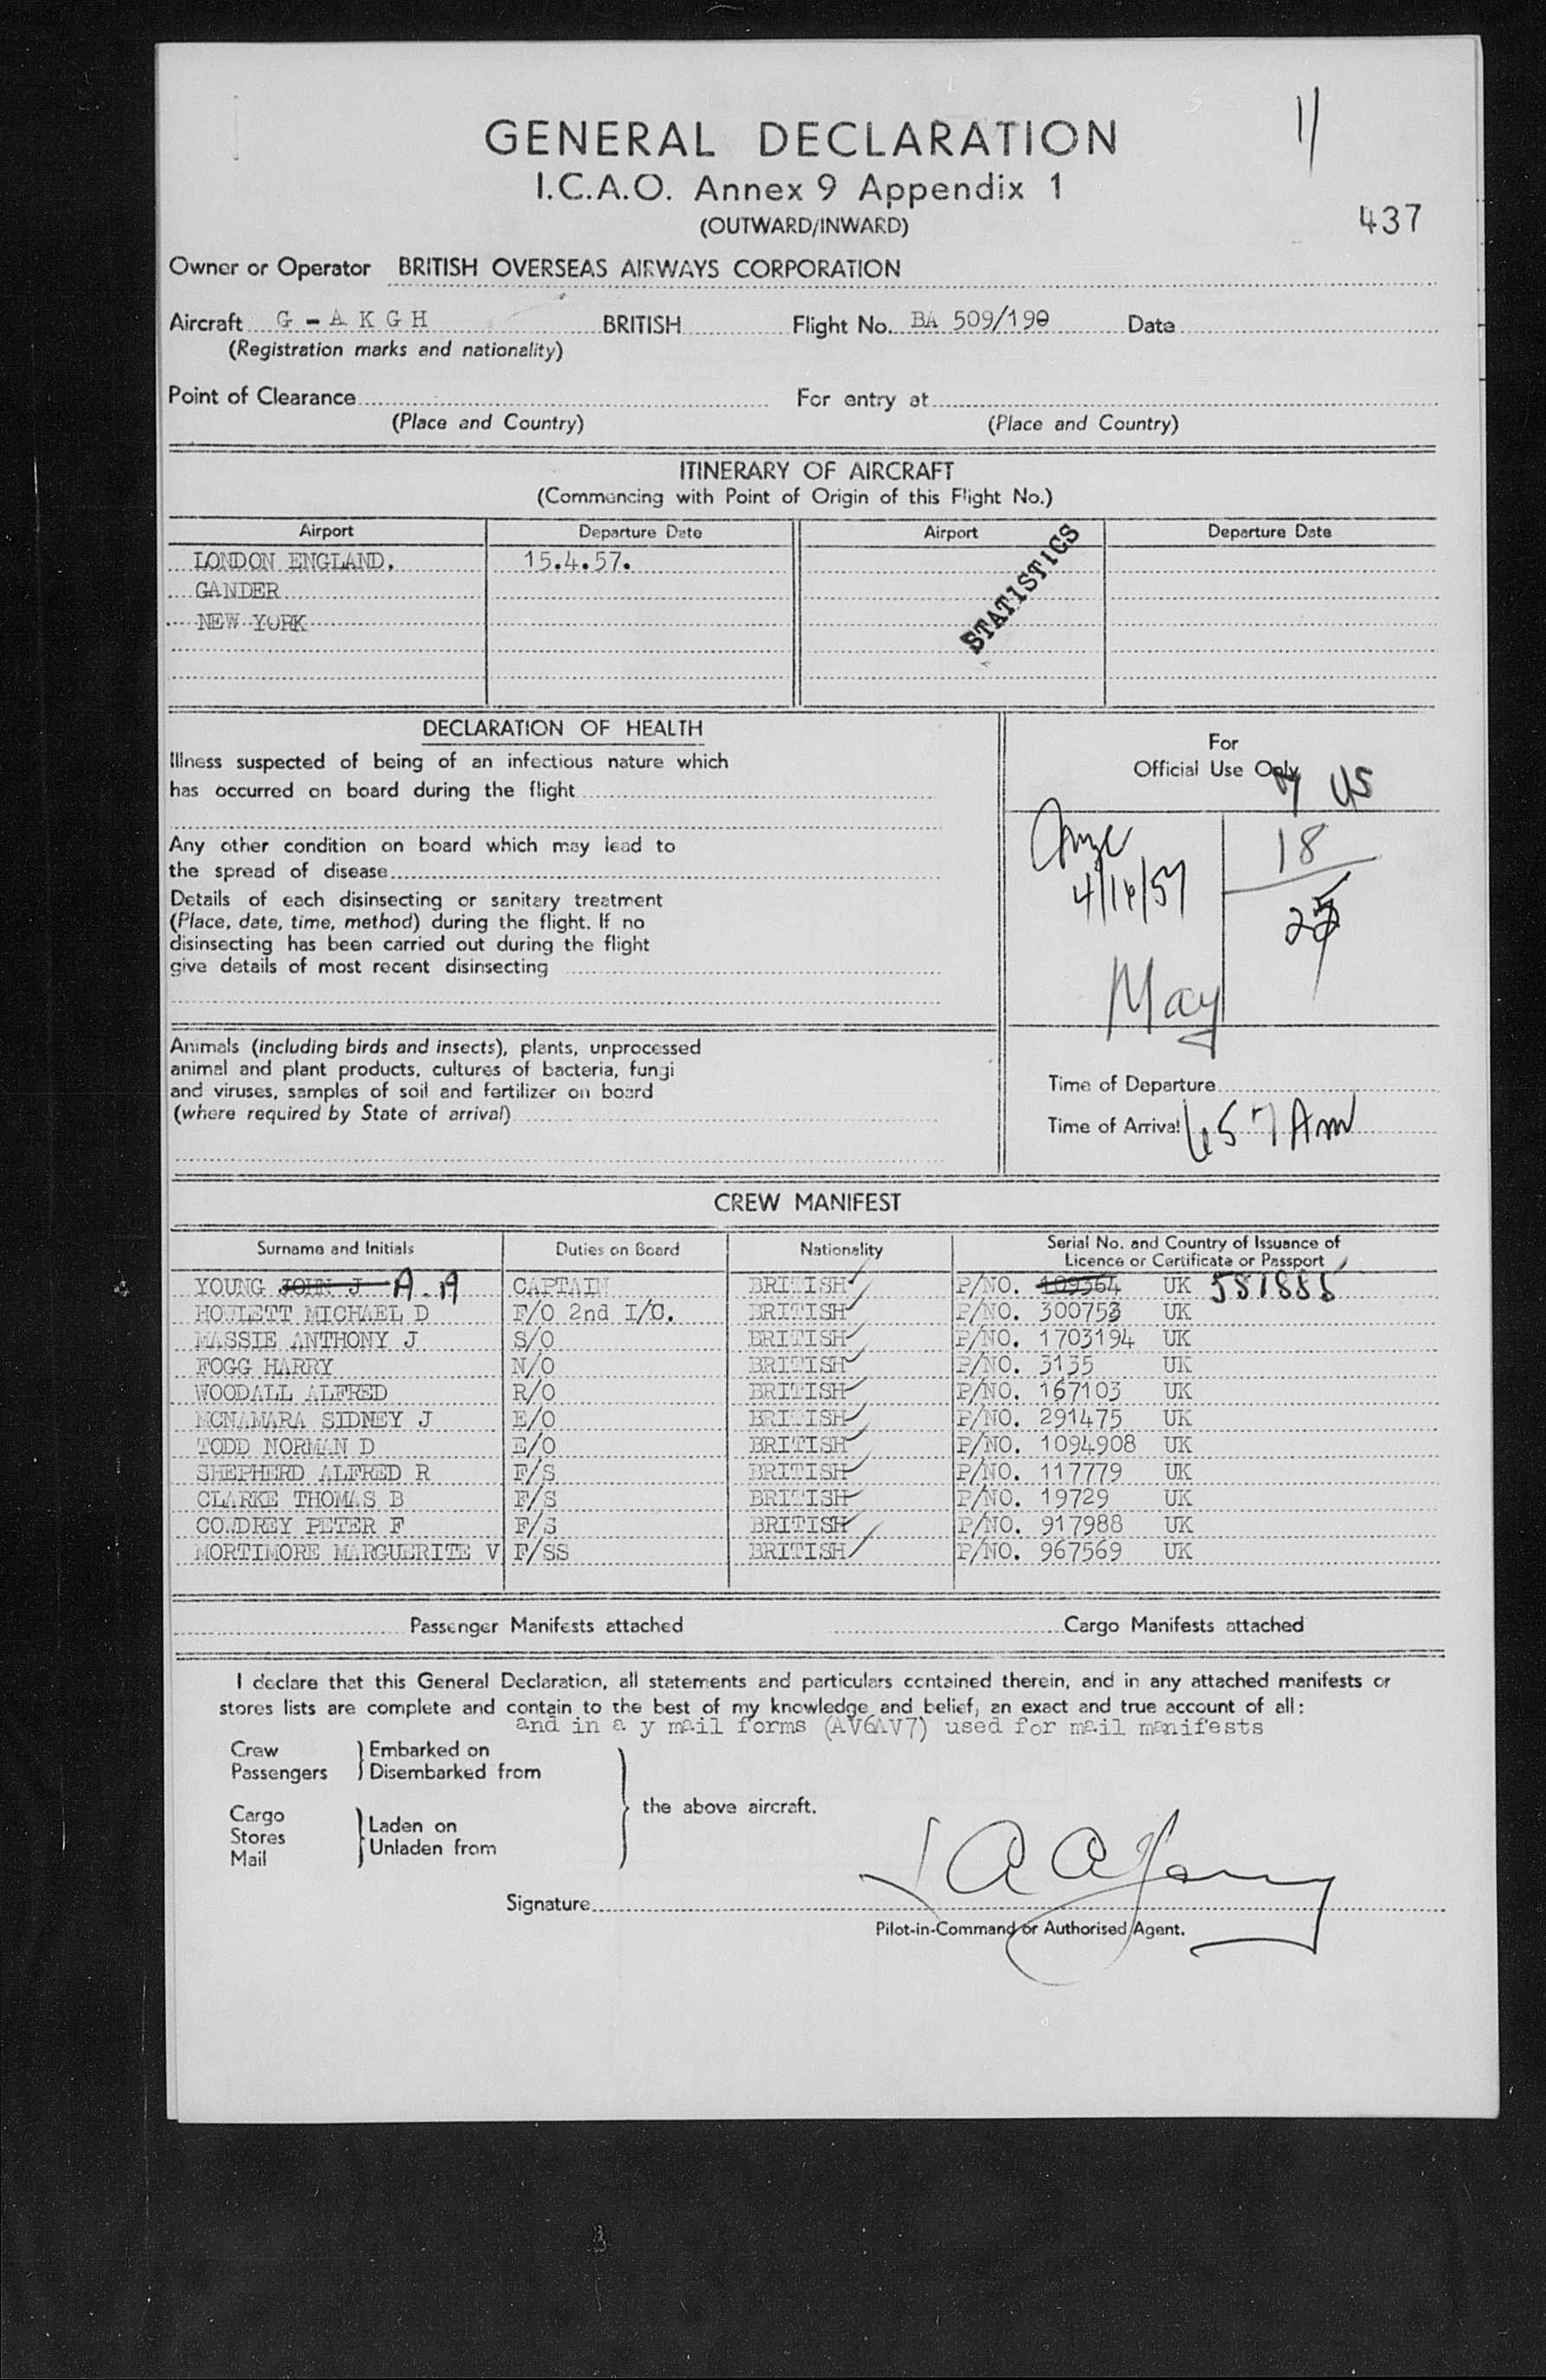 11
GENERAL DECLARATION
I.C.A.O. Annex 9 Appendix 1
(OUTWARD/INWARD)
437
Owner or Operator BRITISH OVERSEAS AIRWAYS CORPORATION
Aircraft G - A K G H BRITISH Flight No. BA 509/190 Date
(Registration marks and nationality)
Point of Clearance For entry at
(Place and Country) (Place and Country)
ITINERARY OF AIRCRAFT
(Commencing with Point of Origin of this Flight No.)
Airport Departure Date Airport Departure Date
LONDON ENGLAND. 15.4.57.
GANDER
NEW YORK
STATISTICS
DECLARATION OF HEALTH
Illness suspected of being of an infectious nature which
has occurred on board during the flight
Any other condition on board which may lead to
the spread of disease
Details of each disinsecting or sanitary treatment
(Place, date, time, method) during the flight. If no
disinsecting has been carried out during the flight
give details of most recent disinsecting
Animals (including birds and insects), plants, unprocessed
animal and plant products, cultures of bacteria, fungi
and viruses, samples of soil and fertilizer on board
(where required by State of arrival)
For
Official Use Only
US
18
4/16/57
25
May
Time of Departure
Time of Arrival 657 AM
CREW MANIFEST
Surname and Initials Duties on Board Nationality Serial No. and Country of Issuance of
Licence or Certificate or Passport
YOUNG JOHN J A.A CAPTAIN BRITISH P/NO. 109364 UK 581885
HOWLETT MICHAEL D F/O 2nd I/C. BRITISH P/NO. 300753 UK
MASSIE ANTHONY J S/O BRITISH P/NO. 1703194 UK
FOGG HARRY N/O BRITISH P/NO. 3135 UK
WOODALL ALFRED R/O BRITISH P/NO. 167103 UK
MCNAMARA SIDNEY J E/O BRITISH P/NO. 291475 UK
TODD NORMAN D E/O BRITISH P/NO. 1094908 UK
SHEPHERD ALFRED R F/S BRITISH P/NO. 117779 UK
CLARKE THOMAS B F/S BRITISH P/NO. 19729 UK
COWDREY PETER F F/S BRITISH P/NO. 917988 UK
MORTIMORE MARGUERITE V F/SS BRITISH P/NO. 967569 UK
Passenger Manifests attached Cargo Manifests attached
I declare that this General Declaration, all statements and particulars contained therein, and in any attached manifests or
stores lists are complete and contain to the best of my knowledge and belief, an exact and true account of all:
and in a y mail forms (AV6AV7) used for mail manifests
Crew Embarked on
Passengers Disembarked from
the above aircraft.
Cargo
Stores Laden on
Mail Unladen from
Signature A A Young
Pilot-in-Command or Authorised Agent.